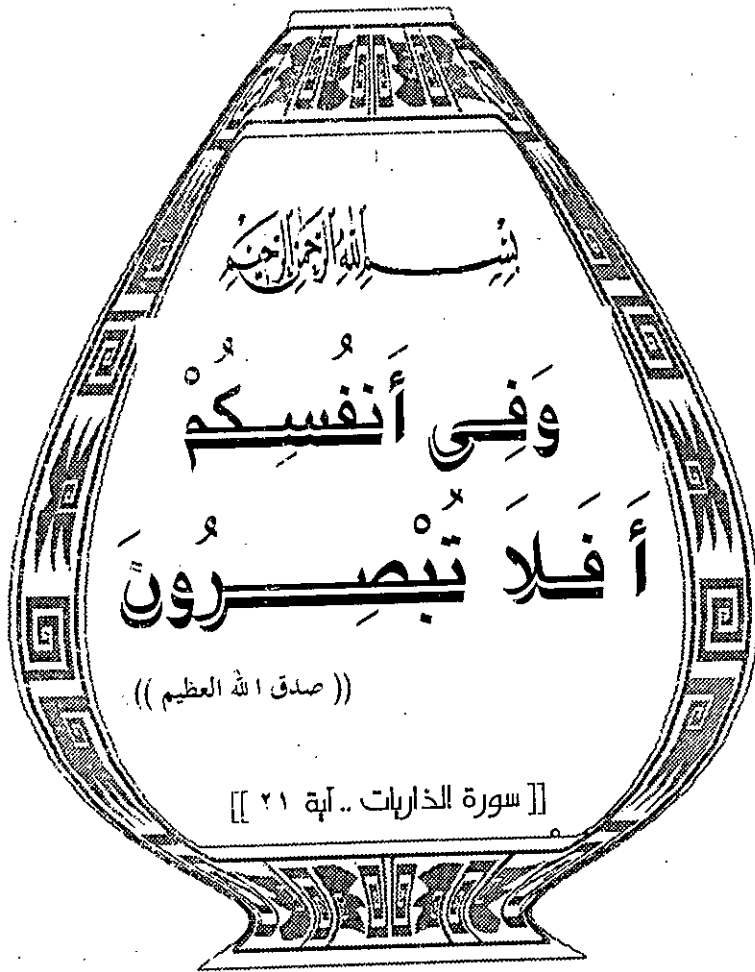 بِسْمِ اللَّهِ الرَّحْمَنِ الرَّحِيمِ
وَفِى أَنفُسِكُمْ
أَ فَلاَ تُبْصِرُونَ
(( صدق الله العظيم ))
[[ سورة الذاريات .. آية ٢١ ]]